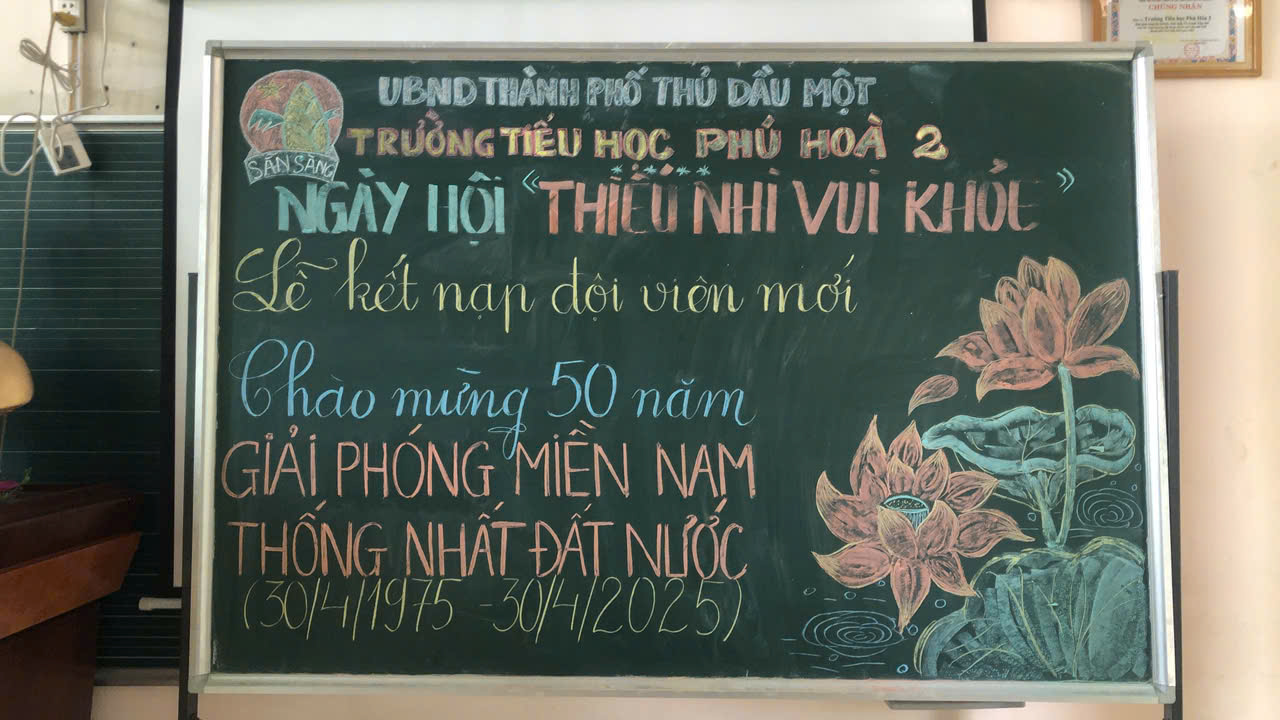 UBND THÀNH PHỐ THỦ DẦU MỘT
TRƯỜNG TIỂU HỌC PHÚ HOÀ 2
SẴN SÀNG
NGÀY HỘI "THIẾU NHI VUI KHỎE"
Lễ kết nạp đội viên mới
Chào mừng 50 năm
GIẢI PHÓNG MIỀN NAM
THỐNG NHẤT ĐẤT NƯỚC
(30/4/1975 - 30/4/2025)
CHỨNG NHẬN
Trường Tiểu học Phú Hòa 2